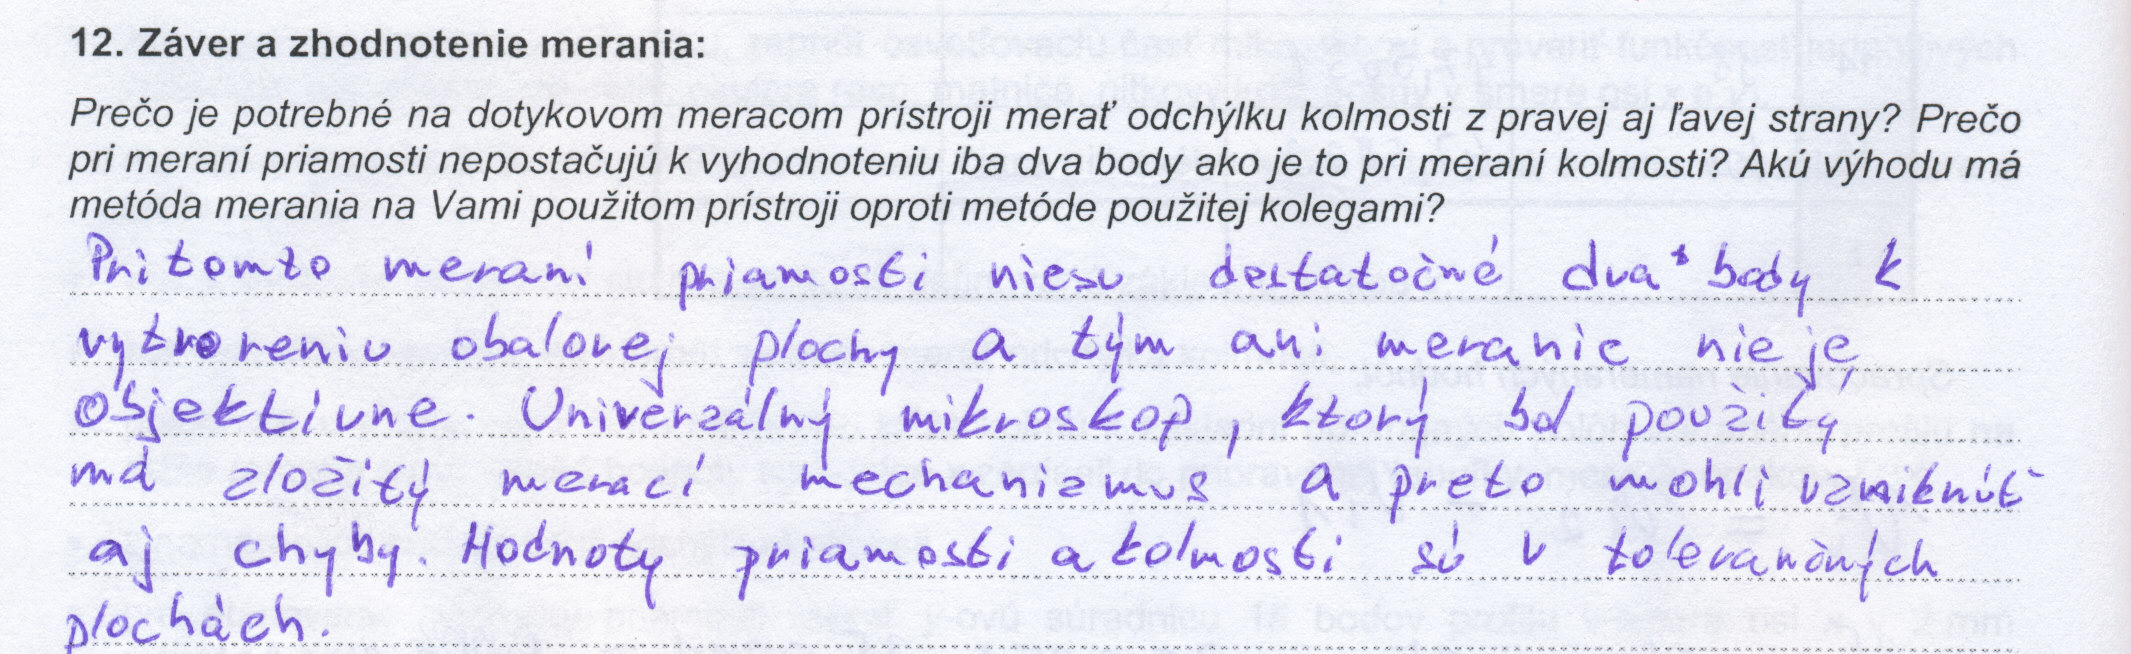 12. Záver a zhodnotenie merania:
Prečo je potrebné na dotykovom meracom prístroji merať odchýlku kolmosti z pravej aj ľavej strany? Prečo
pri meraní priamosti nepostačujú k vyhodnoteniu iba dva body ako je to pri meraní kolmosti? Akú výhodu má
metóda merania na Vami použitom prístroji oproti metóde použitej kolegami?
Pri tomto meraní priamosti niesu dostatočné dva body k
vytvoreniu obalovej plochy a tým ani meranie nie je
objektívne. Univerzálny mikroskop, ktorý bol použitý
má zložitý merací mechanizmus a preto mohli vzniknúť
aj chyby. Hodnoty priamosti a kolmosti sú v tolerančných
plochách.